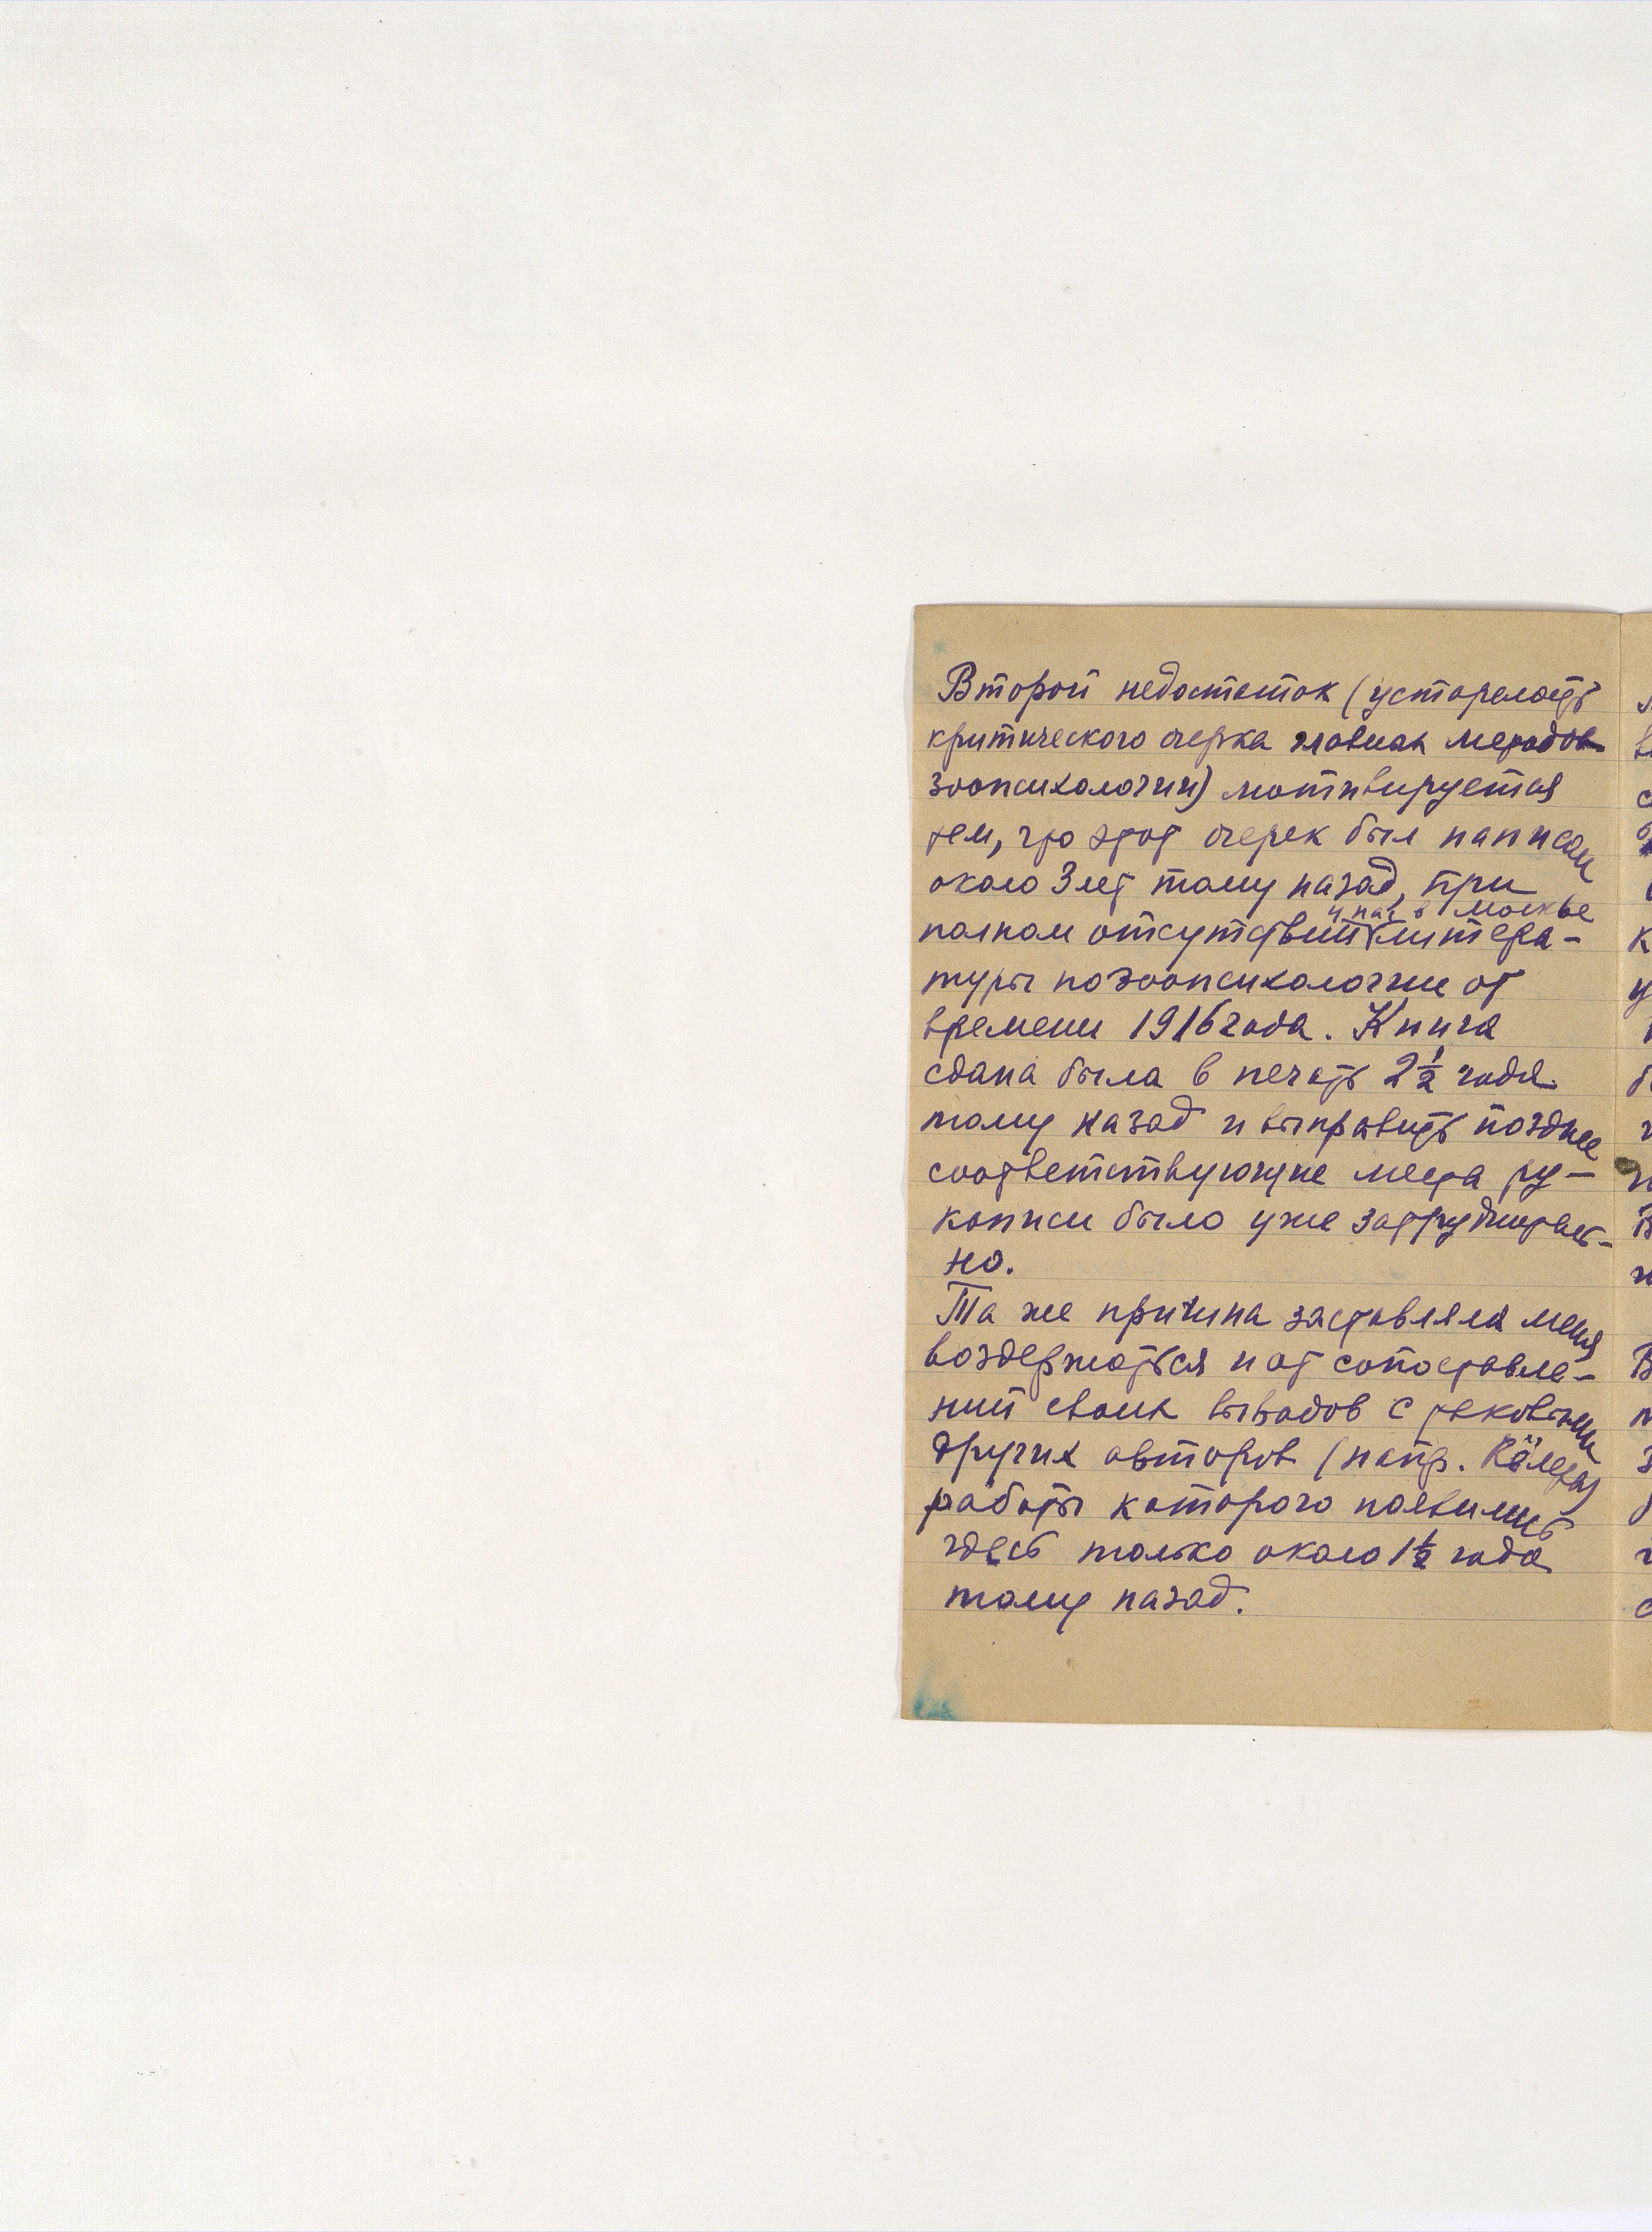 Второй недостаток (устарелость
критического очерка главных методов
зоопсихологии) мотивируется
тем, что этот очерк был написан
около 3 лет тому назад, при
у нас в Москве
полном отсутствии литера-
туры по зоопсихологии от
времени 1916 года. Книга
сдана была в печать 2½ года
тому назад и выправить позднее
соответствующие места ру-
кописи было уже затруднитель-
но.
Та же причина заставляла меня
воздержаться и от сопоставле-
ний своих выводов с таковыми
других авторов (напр. Кёлера,
работы которого появились
здесь только около 1½ года
тому назад.